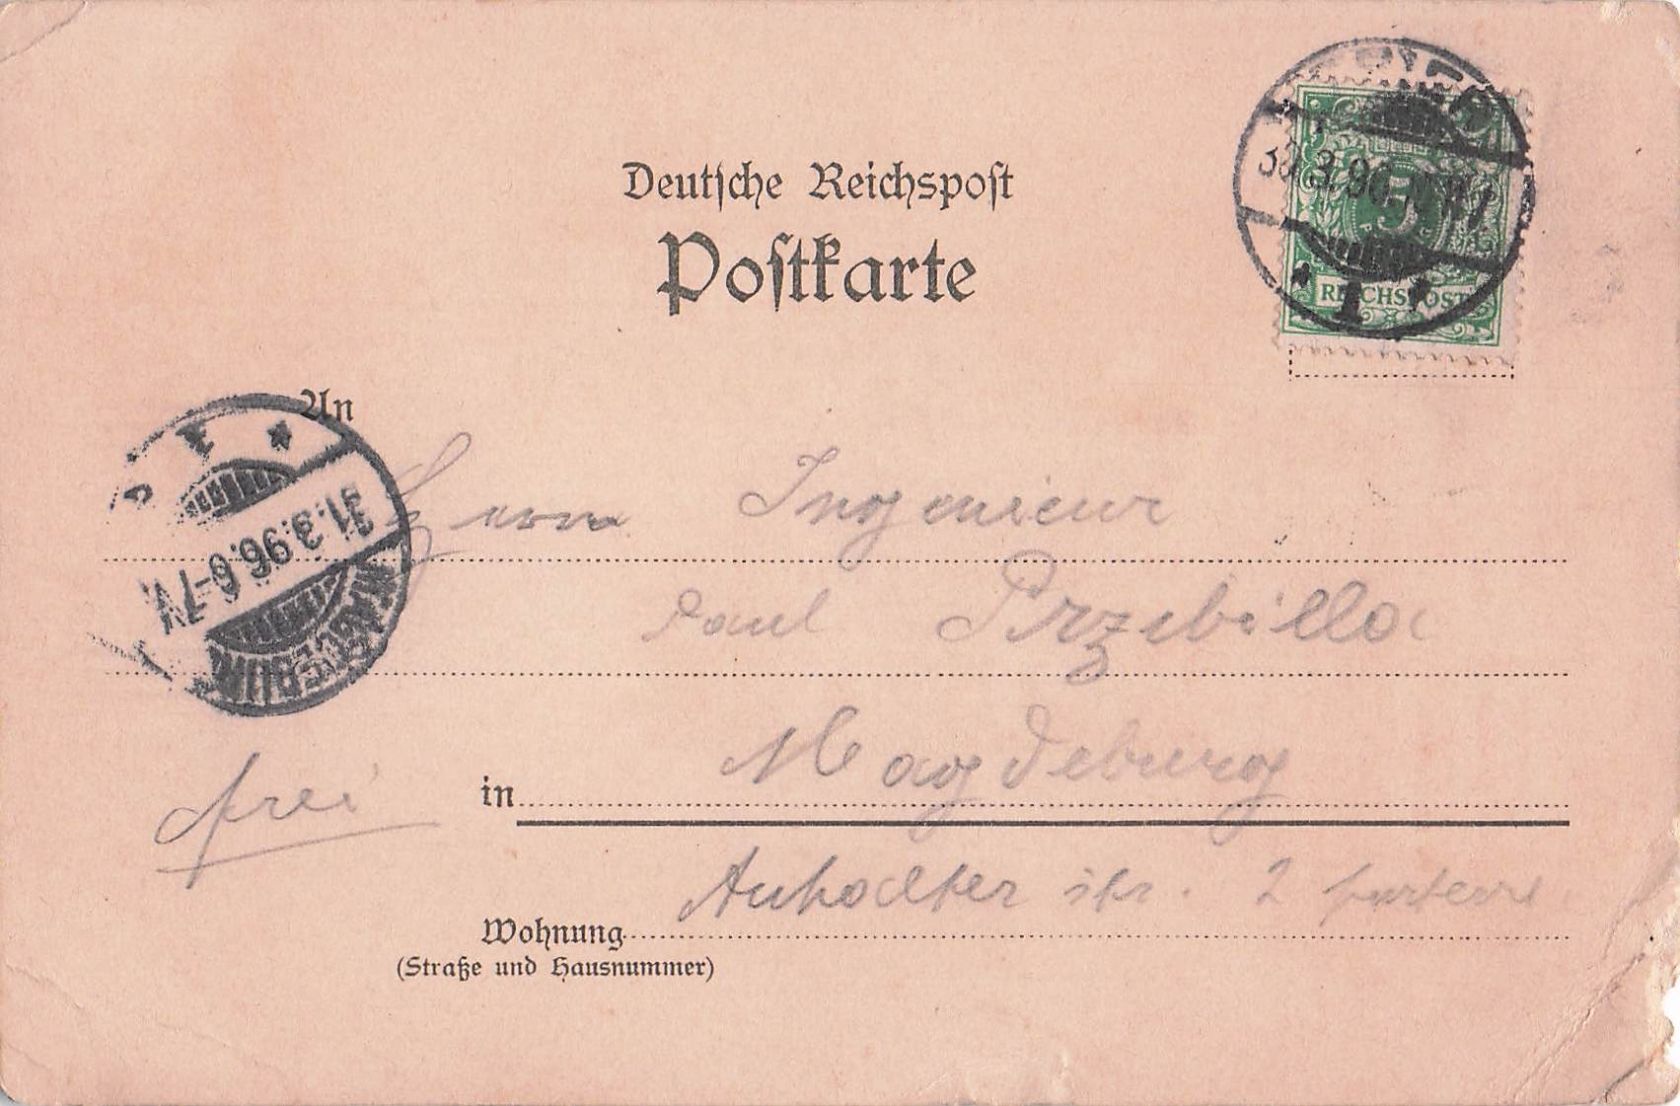 Deutsche Reichspost
Postkarte
30.3.96
5
REICHSPOST
1
An
31.3.96.6-7V.
MAGDEBURG
Herrn Ingenieur
Paul Przibilla
in Magdeburg
frei
Anhalter str. 2 parterre
Wohnung
(Straße und Hausnummer)